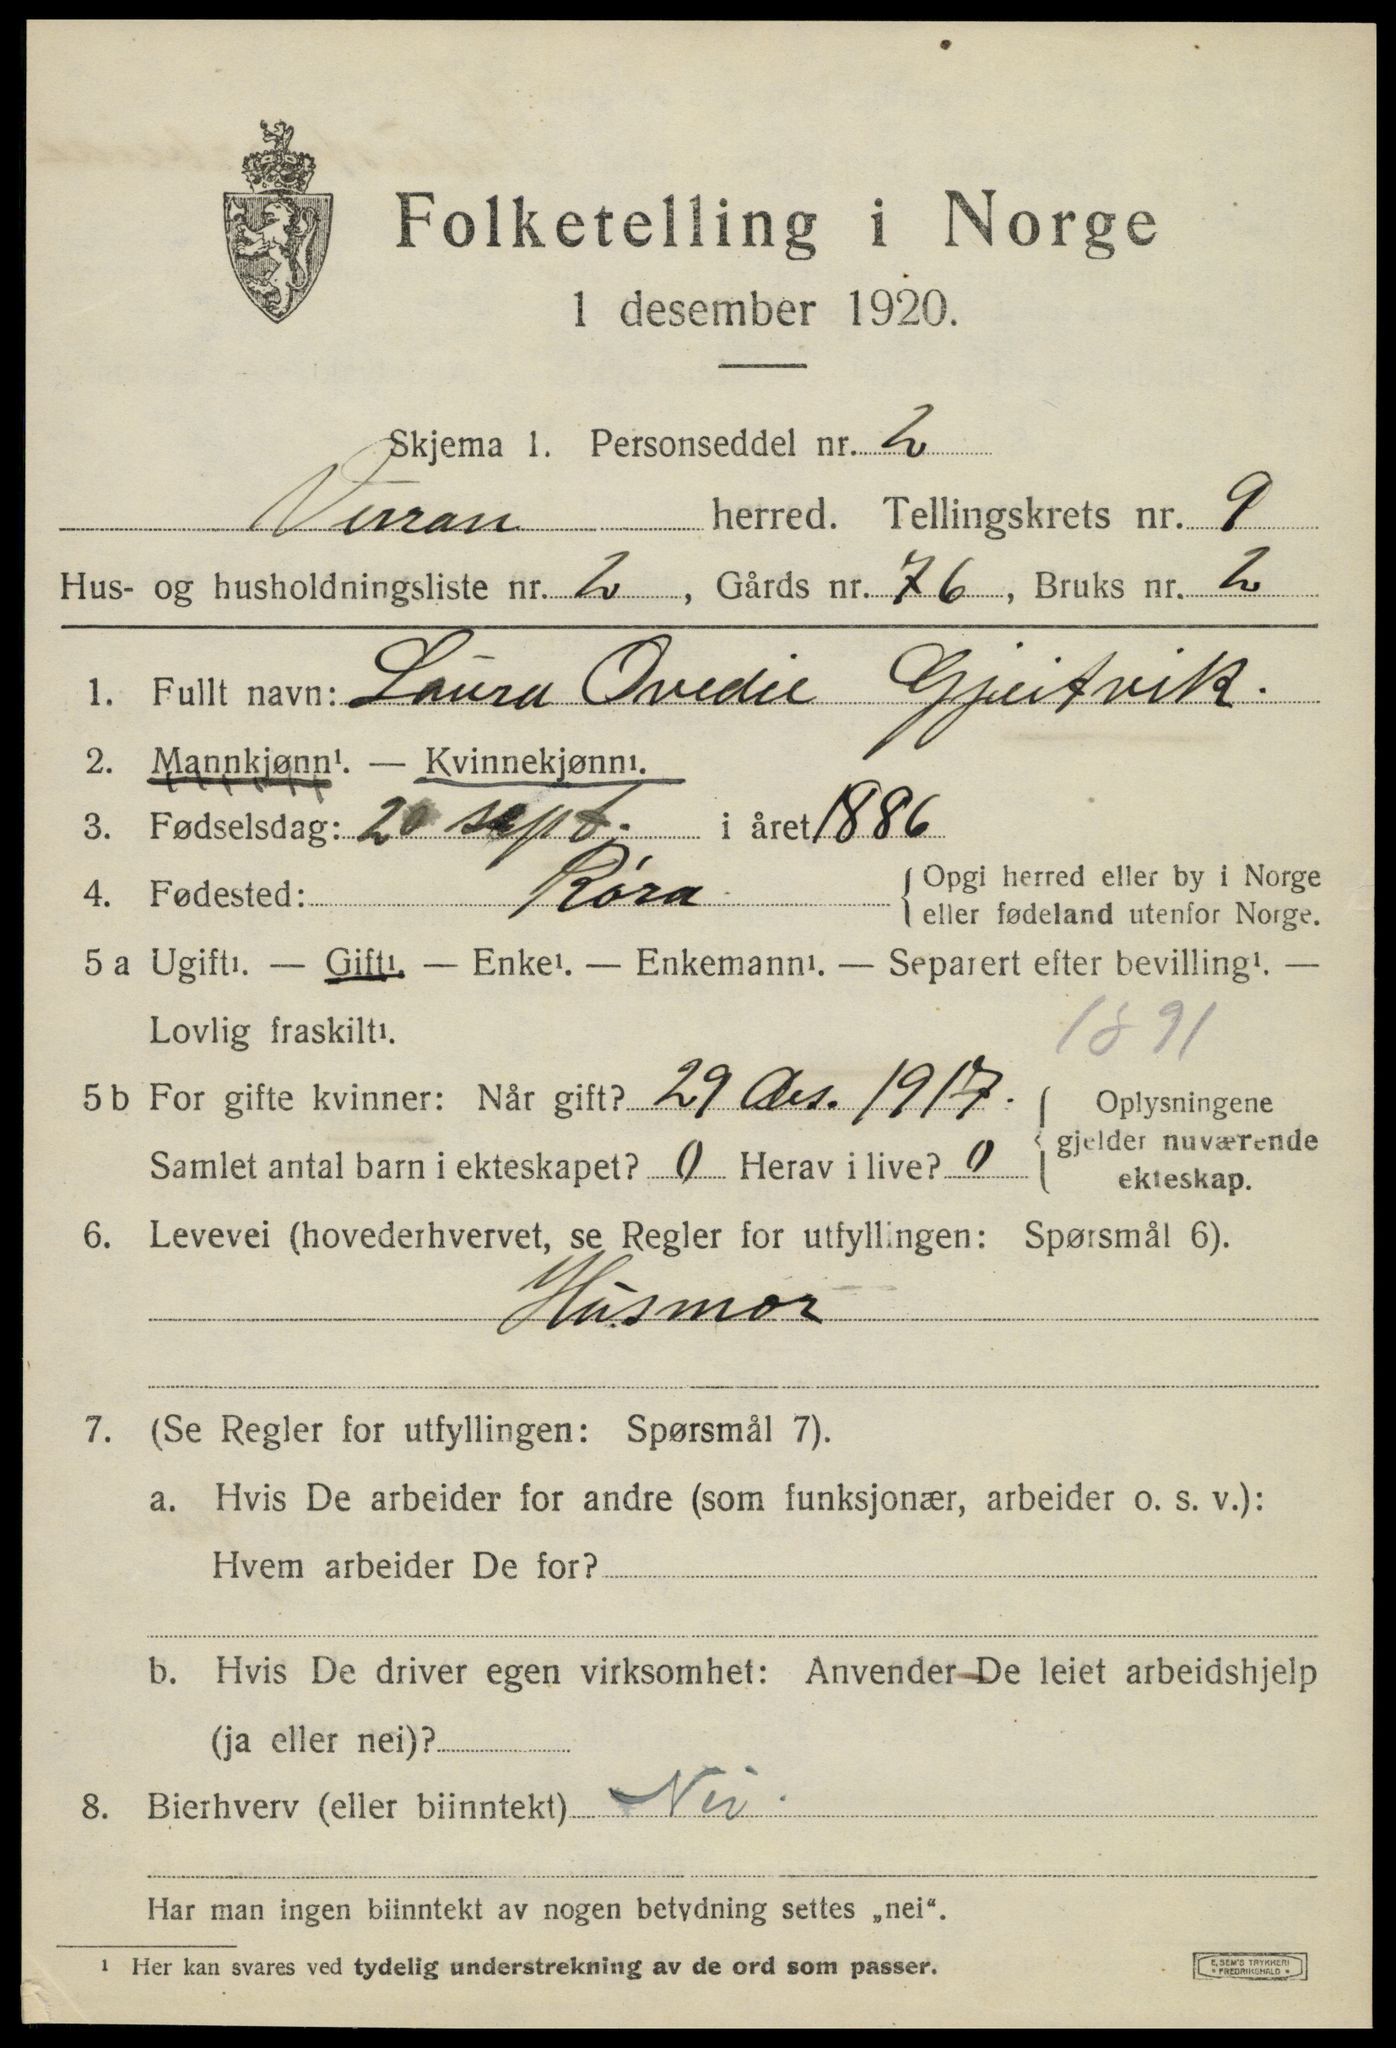 Folketelling i Norge
1 desember 1920.
Skjema 1. Personseddel nr. 2
Verran herred. Tellingskrets nr. 9
Hus- og husholdningsliste nr. 2, Gårds nr. 76, Bruks nr. 2
1. Fullt navn: Laura Ovedie Gjeitvik.
2. Mannkjønn¹. — Kvinnekjønn¹.
3. Fødselsdag: 20 sept. i året 1886
4. Fødested: Röra { Opgi herred eller by i Norge
eller fødeland utenfor Norge.
5 a Ugift¹. — Gift¹. — Enke¹. — Enkemann¹. — Separert efter bevilling¹. —
Lovlig fraskilt¹.
1891
5 b For gifte kvinner: Når gift? 29 Des. 1917. { Oplysningene
gjelder nuværende
Samlet antal barn i ekteskapet? 0 Herav i live? 0
ekteskap.
6. Levevei (hovederhvervet, se Regler for utfyllingen: Spørsmål 6).
Husmor
7. (Se Regler for utfyllingen: Spørsmål 7).
a. Hvis De arbeider for andre (som funksjonær, arbeider o. s. v.):
Hvem arbeider De for?
b. Hvis De driver egen virksomhet: Anvender De leiet arbeidshjelp
(ja eller nei)?
8. Bierhverv (eller biinntekt) Nei.
Har man ingen biinntekt av nogen betydning settes „nei“.
¹ Her kan svares ved tydelig understrekning av de ord som passer.
E. SEM'S TRYKKERI
FREDRIKSHALD